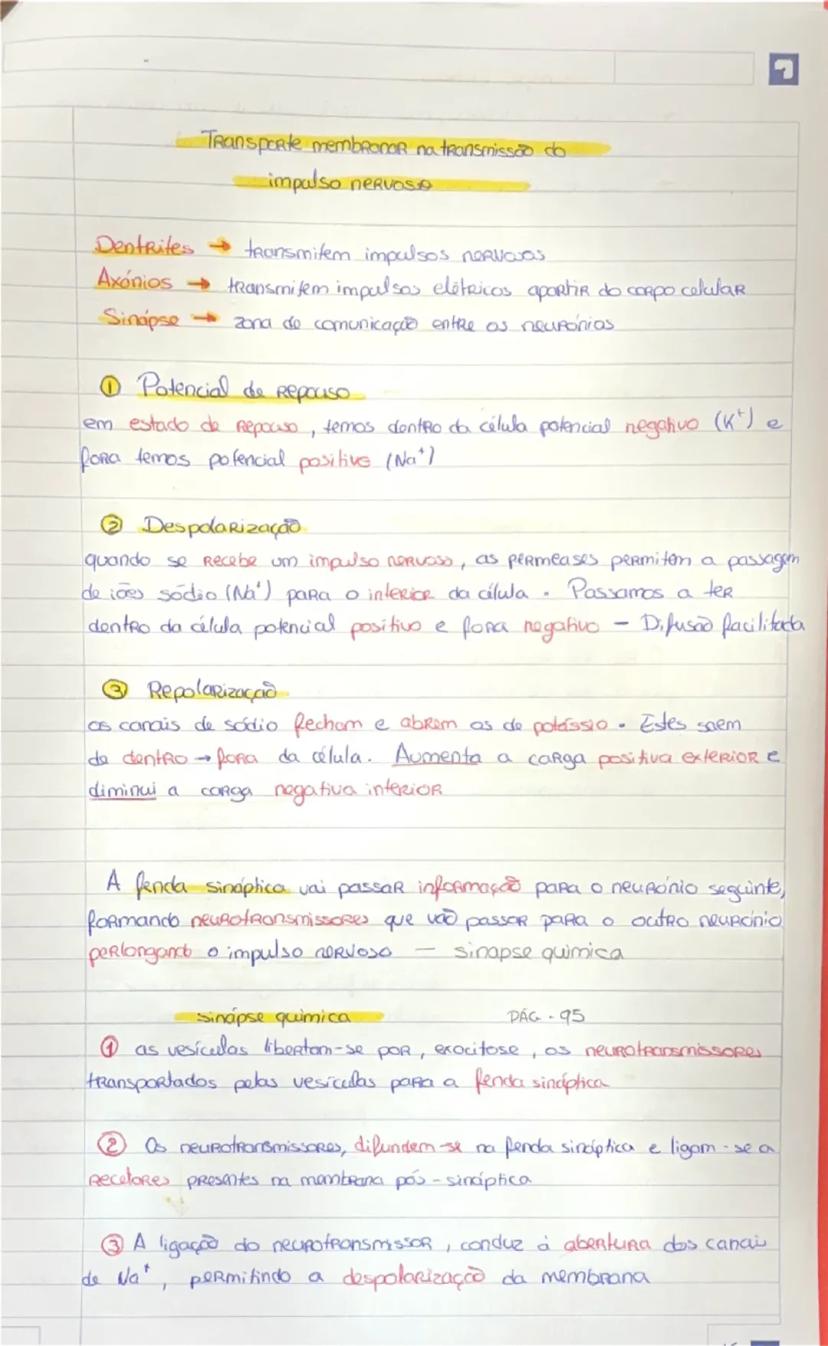 Transporte membranar na transmissão do
impulso nervoso
Dentrites → transmitem impulsos nervosos
Axónios → transmitem impulsos elétricos apartir do corpo celular
Sinápse → zona de comunicação entre os neurónios
① Potencial de repouso
em estado de repouso, temos dentro da célula potencial negativo (K⁺) e
fora temos potencial positivo (Na⁺)
② Despolarização
quando se recebe um impulso nervoso, as permeases permitem a passagem
de iões sódio (Na⁺) para o interior da célula. Passamos a ter
dentro da célula potencial positivo e fora negativo - Difusão facilitada
③ Repolarização
os canais de sódio fecham e abrem os de potássio. Estes saem
de dentro → fora da célula. Aumenta a carga positiva exterior e
diminui a carga negativa interior
A fenda sináptica vai passar informação para o neurónio seguinte,
formando neurotransmissores que vão passar para o outro neurónio
perlongando o impulso nervoso — sinapse quimica
sinápse quimica PÁG. 95
① as vesículas libertam-se por, exocitose, os neurotransmissores
transportados pelas vesículas para a fenda sináptica
② Os neurotransmissores, difundem-se na fenda sináptica e ligam-se a
recetores presentes na membrana pós-sináptica
③ A ligação do neurotransmissor, conduz à abertura dos canais
de Na⁺, permitindo a despolarização da membrana